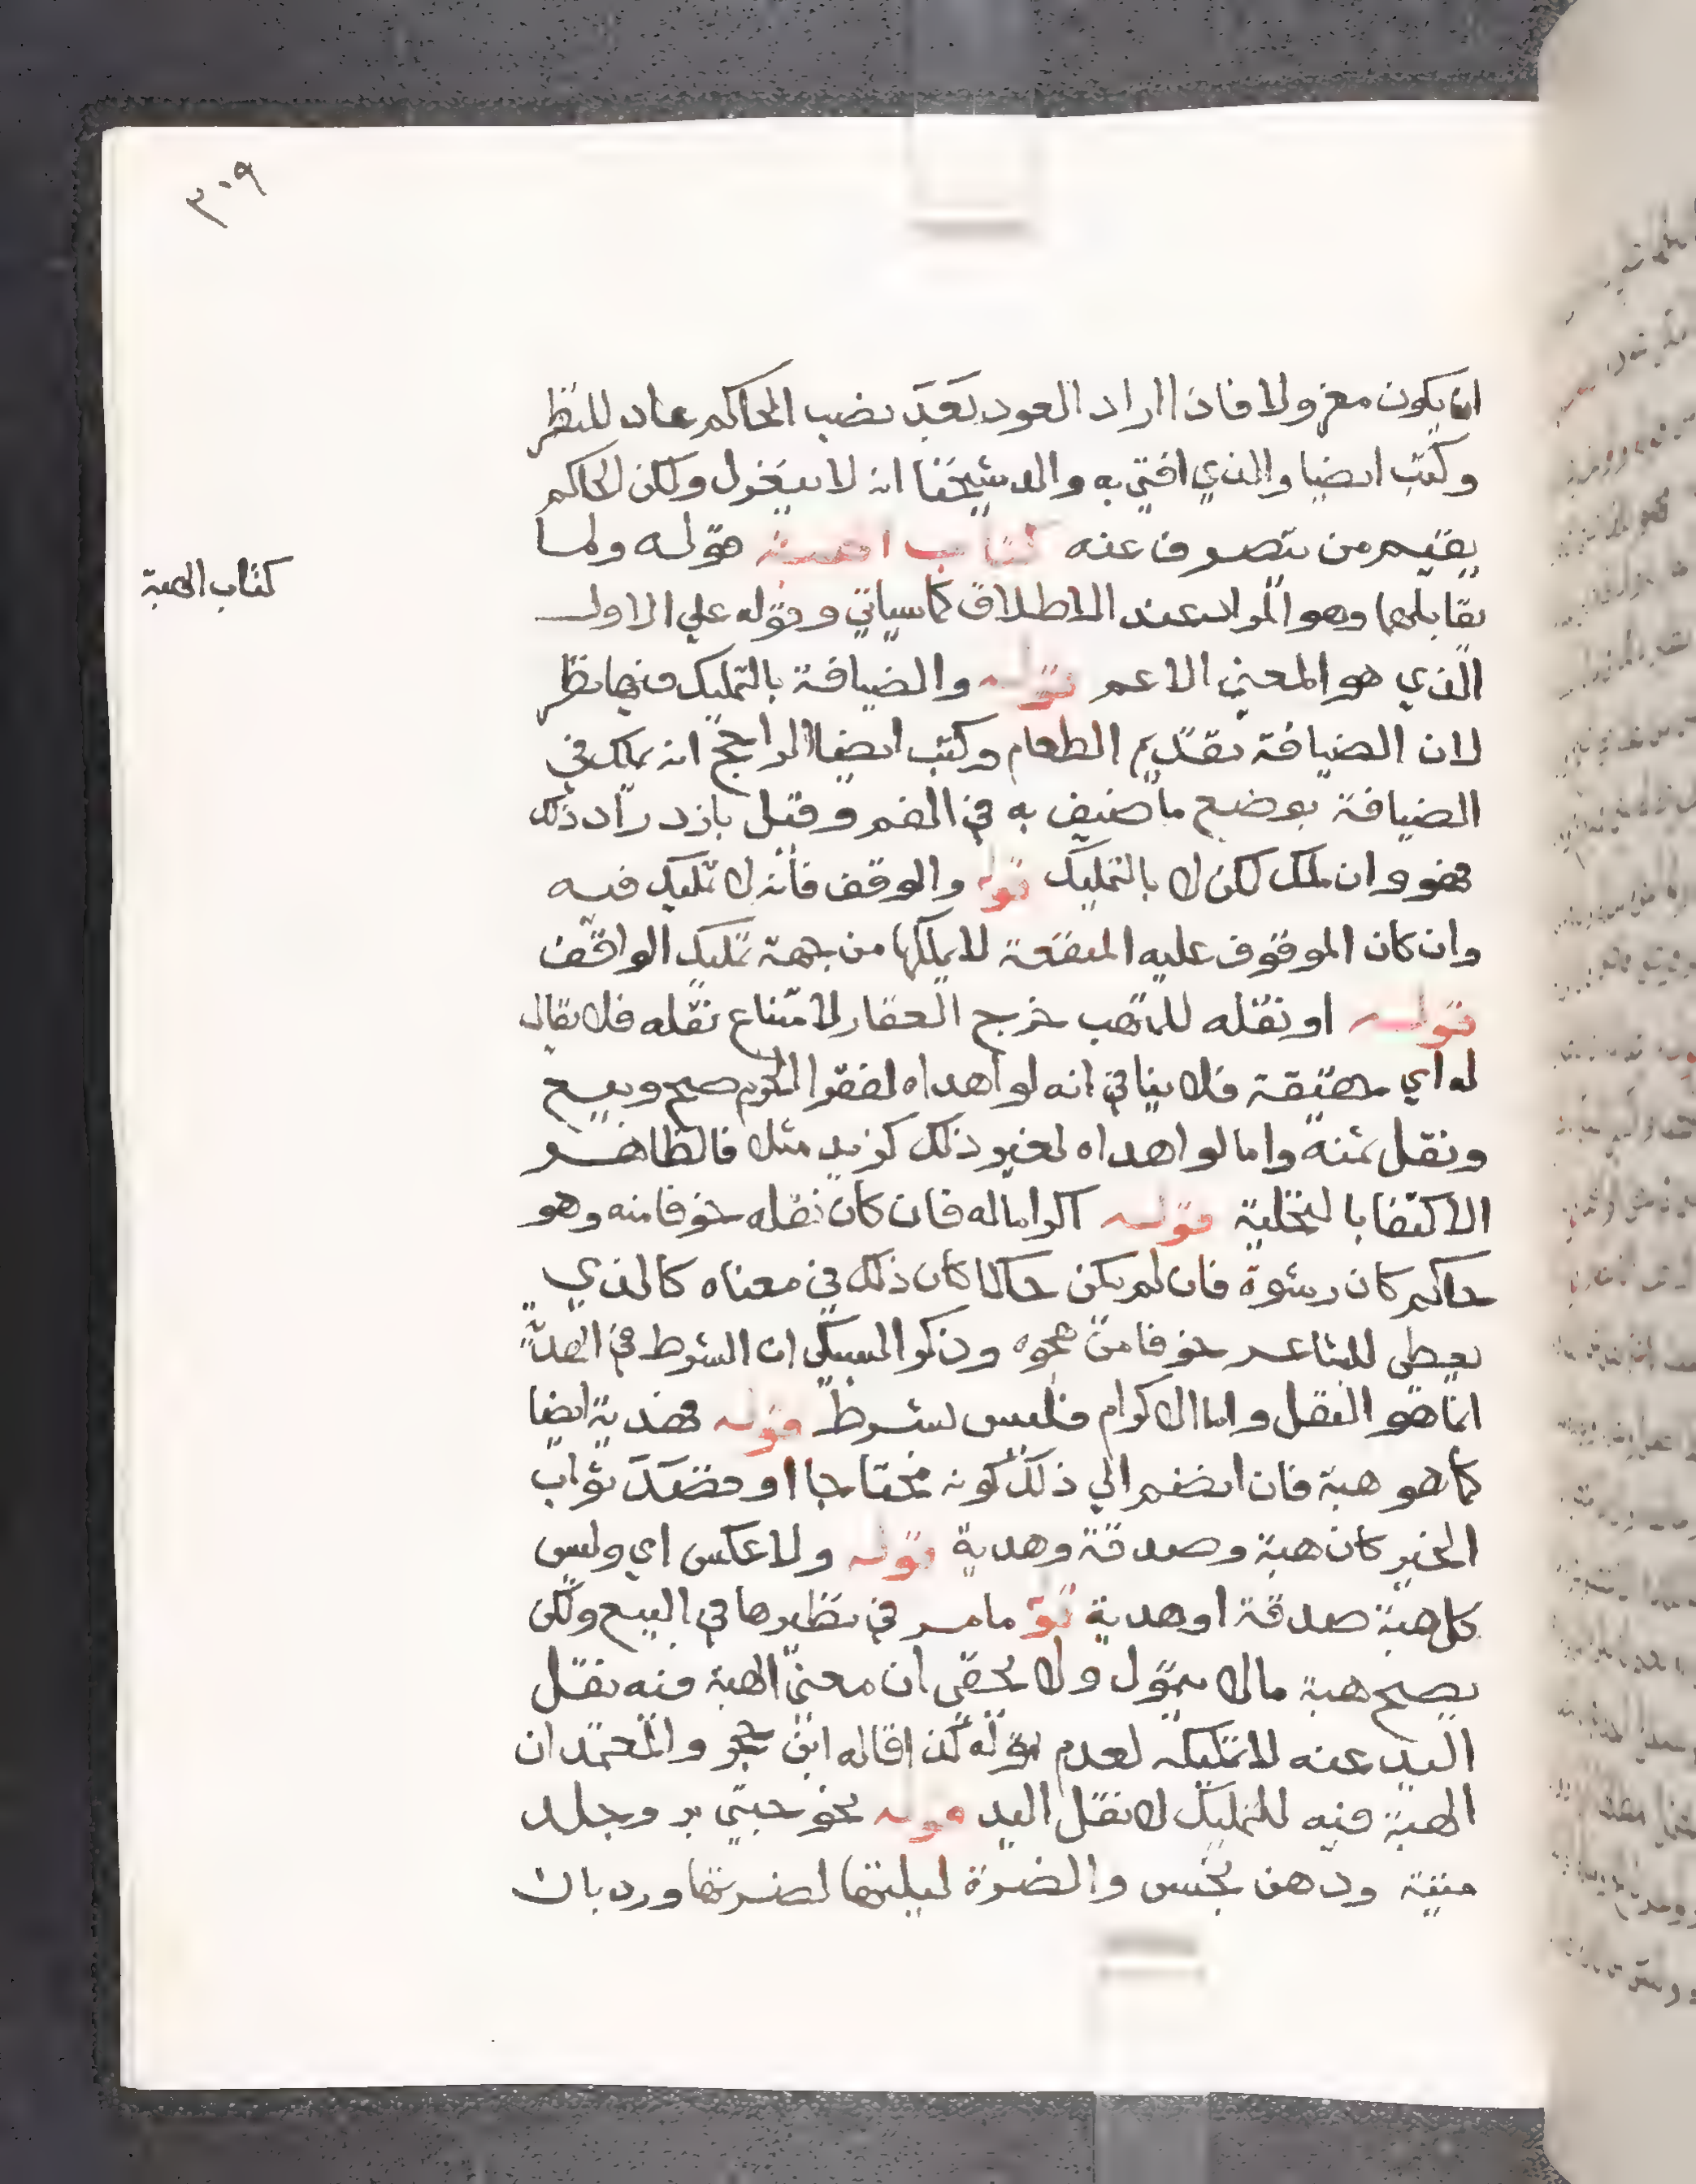 ٣٠٩
ان يكون معزولا فاذا اراد العود بعد نصب الحاكم عاد للنظر
وكتب ايضا والذي افتي به والد شيخنا انه لا ينعزل ولكن الحاكم
يقيم من يتصرف عنه كتاب الهبة قوله ولما
كتاب الهبة
يقابلها وهو المراد عند الاطلاق كما سياتي وقوله علي الاول
الذي هو المعني الاعم قوله والضيافة بالتمليك فيها نظر
لان الضيافة تقديم الطعام وكتب ايضا الراجح انه يملك في
الضيافة بوضع ما ضيف به في الفم وقيل بازدراد ذلك
فهو وان ملك لكن لا بالتمليك قوله والوقف فانه لا تمليك فيه
وان كان الموقوف عليه المنفعة لا يملكها من جهة تمليك الواقف
قوله او نقله للمتهب خرج العقار لامتناع نقله فلا يقال
له اي حقيقة فلا ينافي انه لو اهداه لفقرا الحرم صح وبيع
ونقل ثمنه واما لو اهداه لغير ذلك كزيد مثلا فالظاهر
الاكتفا بالتخلية قوله اكراما له فان كان نقله خوفا منه وهو
حاكم كان رشوة فان لم يكن حاكما كان ذلك في معناه كالذي
يعطي للشاعر خوفا من هجوه وذكر السبكي ان الشرط في الهدية
انما هو النقل واما الاكرام فليس بشرط قوله فهدية ايضا
كما هو هبة فان انضم الي ذلك كونه محتاجا او قصد ثواب
الخير كان هبة وصدقة وهدية قوله ولا عكس اي وليس
كل هبة صدقة او هدية قو ما مر في نظيرها في البيع ولكن
يصح هبة ما لا يتمول ولا يخفي ان معني الهبة فيه نقل
اليد عنه لا تمليكه لعدم تموله كذا قاله ابن حجر والمعتمد ان
الهبة فيه للتمليك لا نقل اليد قوله نحو حبتي بر وجلد
ميتة ودهن نجس والضرة ليلتها لضرتها ورد بان